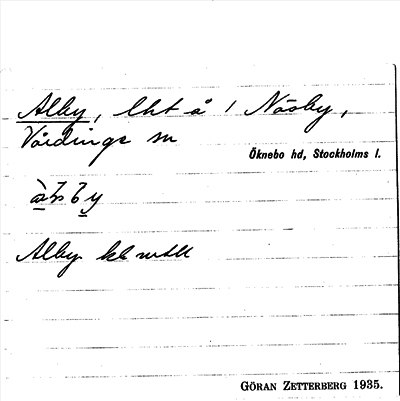 Alby, lht å 1 Näsby,
Vårdinge sn
Öknebo hd, Stockholms l.
Alby
GÖRAN ZETTERBERG 1935.